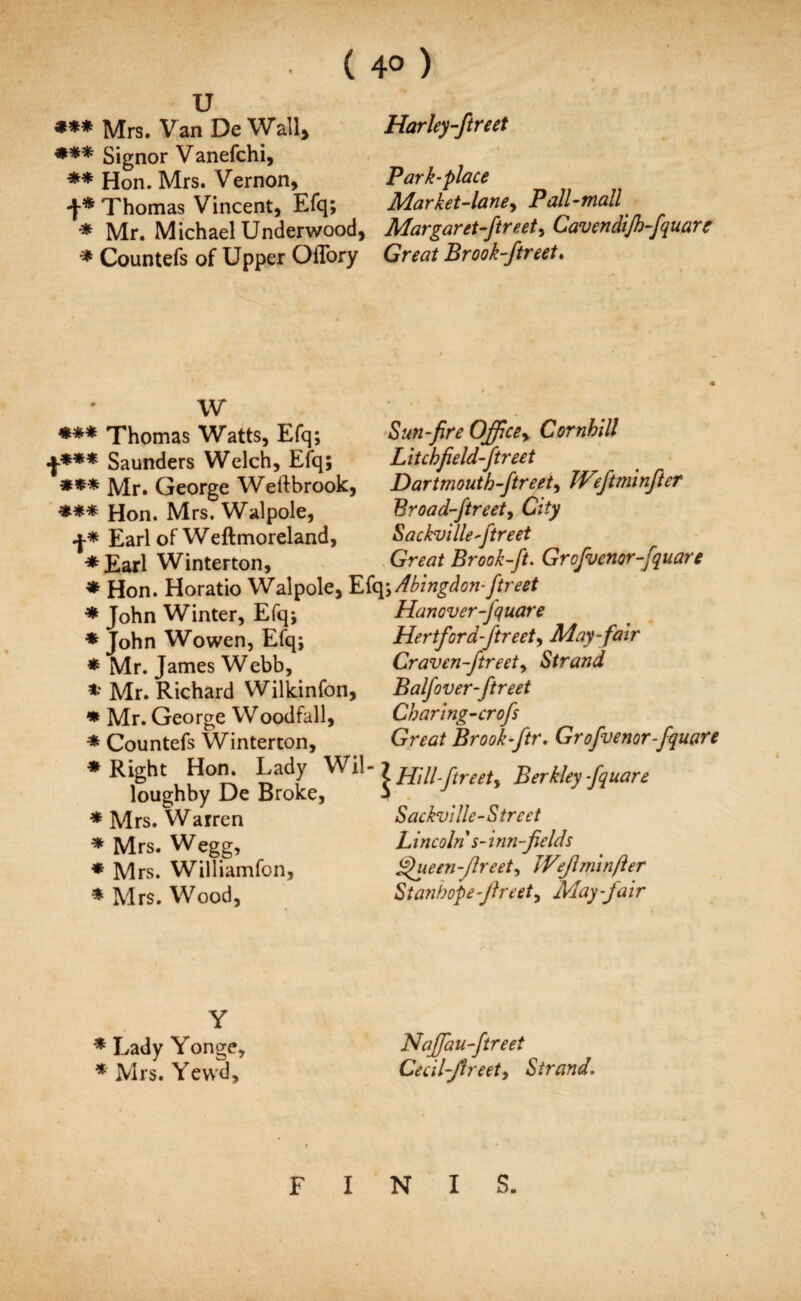 ( 40 )
U
*** Mrs. Van De Wall, Harley-ſtreet
*** Signor Vaneſchi,
** Hon. Mrs. Vernon, Park-place
†* Thomas Vincent, Eſq; Market-lane, Pall-mall
* Mr. Michael Underwood, Margaret-ſtreet, Cavendiſh-ſquare
* Counteſs of Upper Oſſory Great Brook-ſtreet.
W
*** Thomas Watts, Eſq; Sun-fire Office, Cornhill
†*** Saunders Welch, Eſq; Litchfield-ſtreet
*** Mr. George Weſtbrook, Dartmouth-ſtreet, Weſtminſter
*** Hon. Mrs. Walpole, Broad-ſtreet, City
†* Earl of Weſtmoreland, Sackville-ſtreet
* Earl Winterton, Great Brook-ſt. Groſvenor-ſquare
* Hon. Horatio Walpole, Eſq; Abingdon-ſtreet
* John Winter, Eſq; Hanover-ſquare
* John Wowen, Eſq; Hertford-ſtreet, May-fair
* Mr. James Webb, Craven-ſtreet, Strand
* Mr. Richard Wilkinſon, Balſover-ſtreet
* Mr. George Woodfall, Charing-croſs
* Counteſs Winterton, Great Brook-ſtr. Groſvenor-ſquare
* Right Hon. Lady Wil- } Hill-ſtreet, Berkley-ſquare
loughby De Broke,
* Mrs. Warren Sackville-Street
* Mrs. Wegg, Lincoln's-inn-fields
* Mrs. Williamſon, Queen-ſtreet, Weſtminſter
* Mrs. Wood, Stanhope-ſtreet, May-fair
Y
* Lady Yonge, Naſſau-ſtreet
* Mrs. Yewd, Cecil-ſtreet, Strand.
F I N I S.